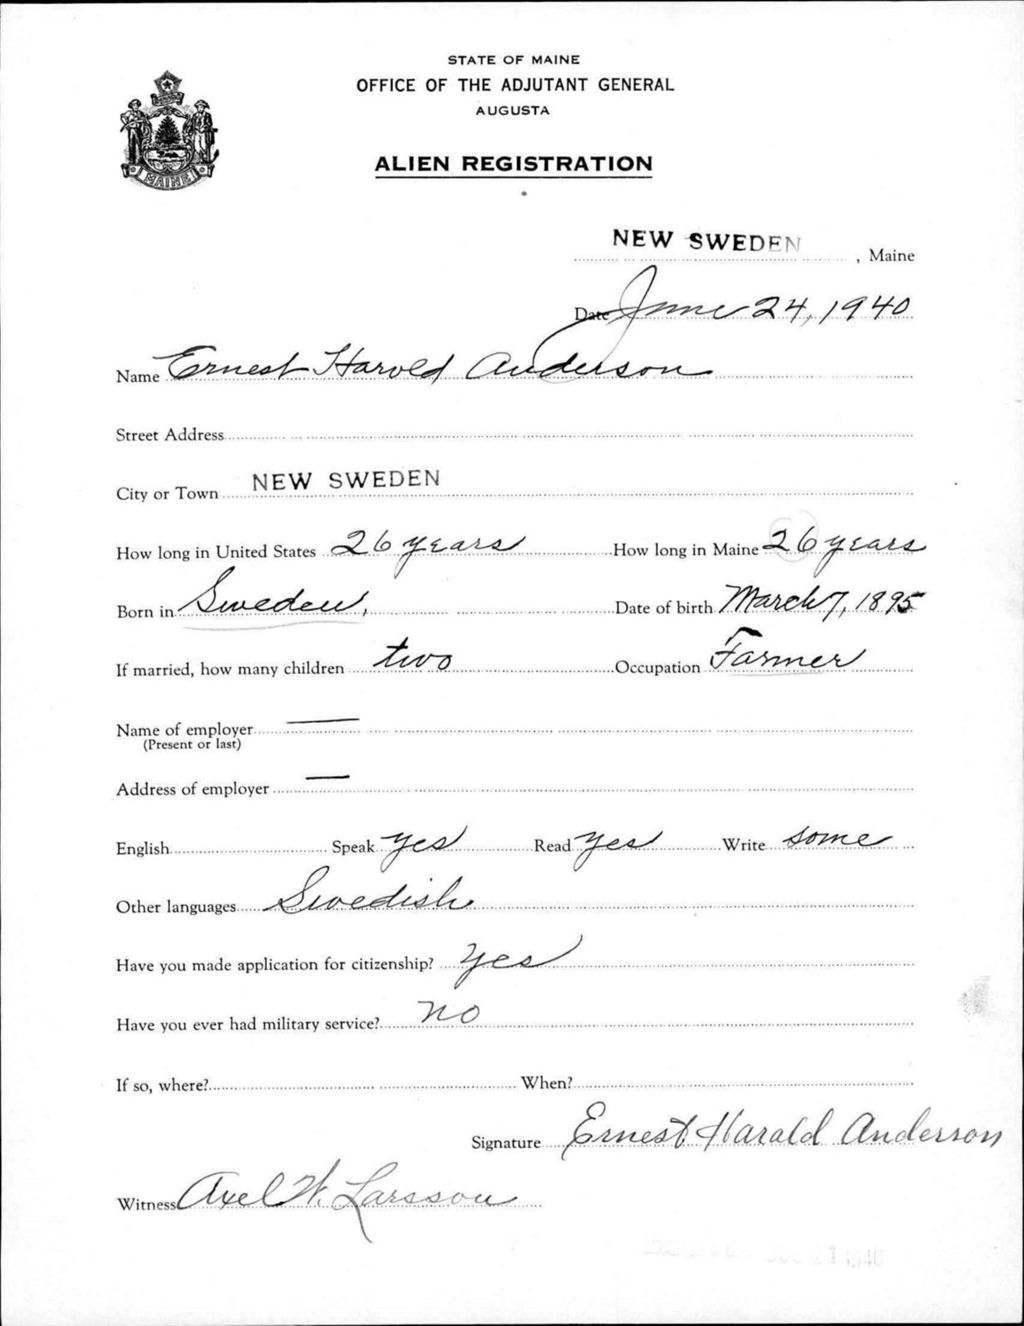 STATE OF MAINE
OFFICE OF THE ADJUTANT GENERAL
AUGUSTA
ALIEN REGISTRATION
MAINE
NEW SWEDEN, Maine
Date June 24, 1940
Name Ernest Harold Anderson
Street Address
City or Town NEW SWEDEN
How long in United States 26 years How long in Maine 26 years
Born in Sweden, Date of birth March 7, 1895
If married, how many children two Occupation Farmer
Name of employer —
(Present or last)
Address of employer —
English Speak yes Read yes Write some
Other languages Swedish
Have you made application for citizenship? yes
Have you ever had military service? no
If so, where? When?
Signature Ernest Harald Anderson
Witness Axel W. Larsson
1940